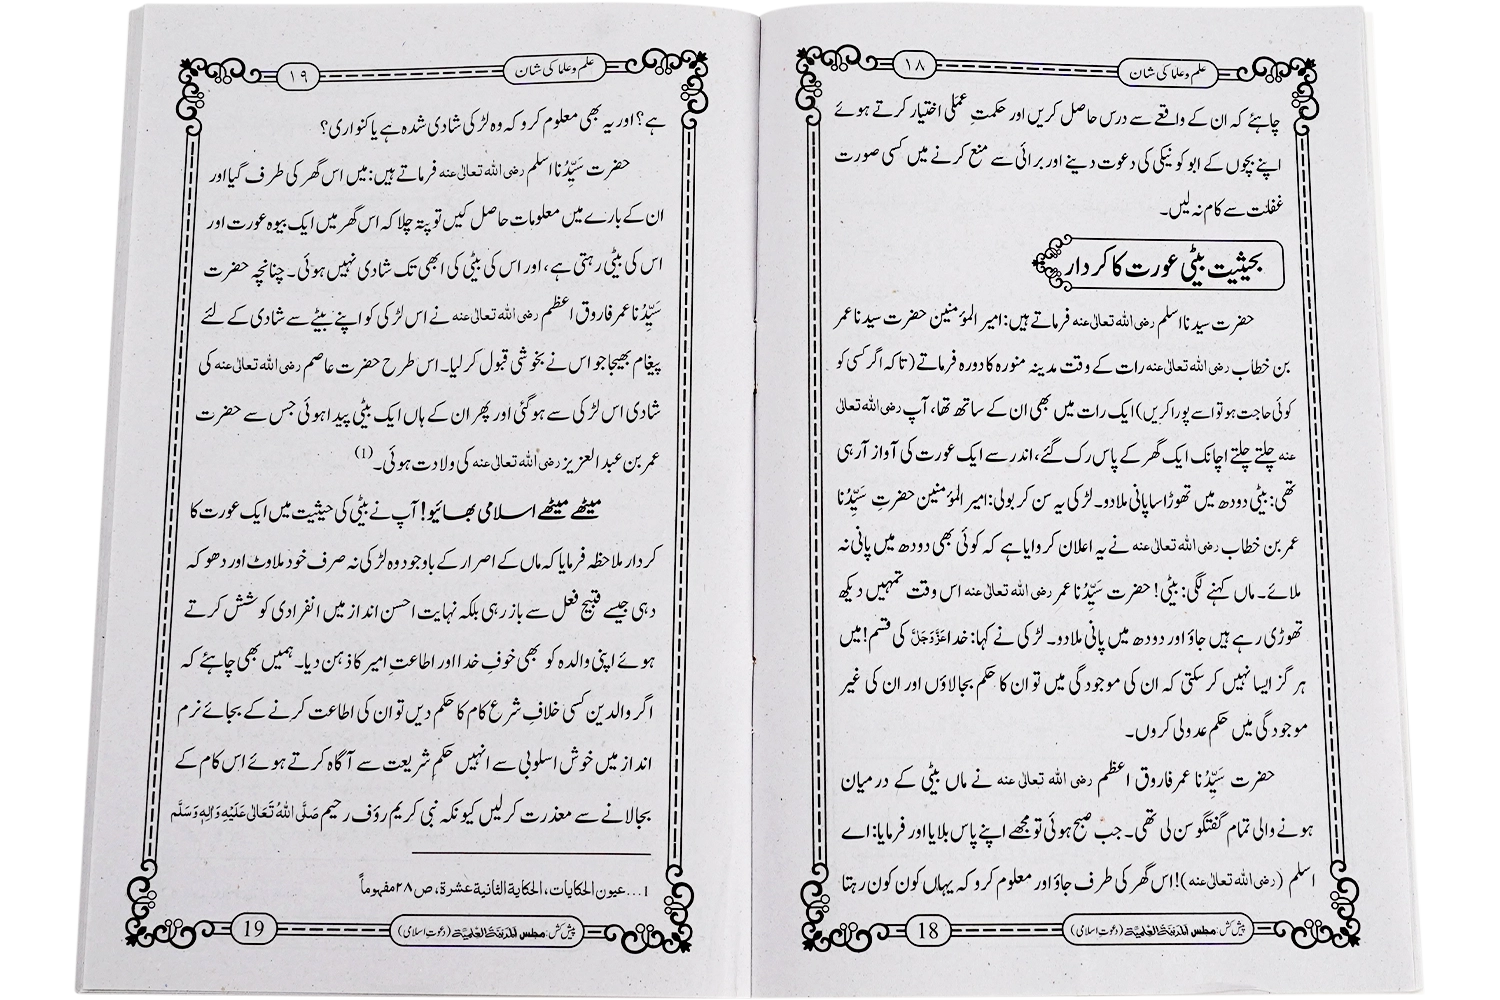 علم و علما کی شان
۱۸
چاہئے کہ ان کے واقعے سے درس حاصل کریں اور حکمتِ عملی اختیار کرتے ہوئے
اپنے بچوں کے ابو کو نیکی کی دعوت دینے اور برائی سے منع کرنے میں کسی صورت
غفلت سے کام نہ لیں۔
بحیثیت بیٹی عورت کا کردار
حضرت سیدنا اسلم رضی اللہ تعالیٰ عنہ فرماتے ہیں: امیر المؤمنین حضرت سیدنا عمر
بن خطاب رضی اللہ تعالیٰ عنہ رات کے وقت مدینہ منورہ کا دورہ فرماتے (تاکہ اگر کسی کو
کوئی حاجت ہو تو اسے پورا کریں) ایک رات میں بھی ان کے ساتھ تھا، آپ رضی اللہ تعالیٰ
عنہ چلتے چلتے اچانک ایک گھر کے پاس رک گئے، اندر سے ایک عورت کی آواز آرہی
تھی: بیٹی دودھ میں تھوڑا سا پانی ملا دو۔ لڑکی یہ سن کر بولی: امیر المؤمنین حضرتِ سَیِّدُنا
عمر بن خطاب رضی اللہ تعالیٰ عنہ نے یہ اعلان کروایا ہے کہ کوئی بھی دودھ میں پانی نہ
ملائے۔ ماں کہنے لگی: بیٹی! حضرت سَیِّدُنا عمر رضی اللہ تعالیٰ عنہ اس وقت تمہیں دیکھ
تھوڑی رہے ہیں جاؤ اور دودھ میں پانی ملا دو۔ لڑکی نے کہا: خدا عَزَّوَجَلَّ کی قسم! میں
ہر گز ایسا نہیں کر سکتی کہ ان کی موجودگی میں تو ان کا حکم بجا لاؤں اور ان کی غیر
موجودگی میں حکم عدولی کروں۔
حضرت سَیِّدُنا عمر فاروق اعظم رضی اللہ تعالیٰ عنہ نے ماں بیٹی کے درمیان
ہونے والی تمام گفتگو سن لی تھی۔ جب صبح ہوئی تو مجھے اپنے پاس بلایا اور فرمایا: اے
اسلم (رضی اللہ تعالیٰ عنہ)! اس گھر کی طرف جاؤ اور معلوم کرو کہ یہاں کون کون رہتا
پیش کش: مجلس المدینۃ العلمیۃ (دعوت اسلامی)
18
علم و علما کی شان
۱۹
ہے؟ اور یہ بھی معلوم کرو کہ وہ لڑکی شادی شدہ ہے یا کنواری؟
حضرت سَیِّدُنا اسلم رضی اللہ تعالیٰ عنہ فرماتے ہیں: میں اس گھر کی طرف گیا اور
ان کے بارے میں معلومات حاصل کیں تو پتہ چلا کہ اس گھر میں ایک بیوہ عورت اور
اس کی بیٹی رہتی ہے، اور اس کی بیٹی کی ابھی تک شادی نہیں ہوئی۔ چنانچہ حضرت
سَیِّدُنا عمر فاروق اعظم رضی اللہ تعالیٰ عنہ نے اس لڑکی کو اپنے بیٹے سے شادی کے لئے
پیغام بھیجا جو اس نے بخوشی قبول کر لیا۔ اس طرح حضرت عاصم رضی اللہ تعالیٰ عنہ کی
شادی اس لڑکی سے ہو گئی اور پھر ان کے ہاں ایک بیٹی پیدا ہوئی جس سے حضرت
عمر بن عبد العزیز رضی اللہ تعالیٰ عنہ کی ولادت ہوئی۔(1)
میٹھے میٹھے اسلامی بھائیو! آپ نے بیٹی کی حیثیت میں ایک عورت کا
کردار ملاحظہ فرمایا کہ ماں کے اصرار کے باوجود وہ لڑکی نہ صرف خود ملاوٹ اور دھوکہ
دہی جیسے قبیح فعل سے باز رہی بلکہ نہایت احسن انداز میں انفرادی کوشش کرتے
ہوئے اپنی والدہ کو بھی خوفِ خدا اور اطاعتِ امیر کا ذہن دیا۔ ہمیں بھی چاہئے کہ
اگر والدین کسی خلافِ شرع کام کا حکم دیں تو ان کی اطاعت کرنے کے بجائے نرم
انداز میں خوش اسلوبی سے انہیں حکمِ شریعت سے آگاہ کرتے ہوئے اس کام کے
بجا لانے سے معذرت کر لیں کیونکہ نبی کریم رؤف رحیم صَلَّی اللہُ تَعَالٰی عَلَیْہِ وَاٰلِہٖ وَسَلَّم
1...عیون الحکایات، الحکایۃ الثانیۃ عشرۃ، ص ۲۸ مفہوماً
پیش کش: مجلس المدینۃ العلمیۃ (دعوت اسلامی)
19